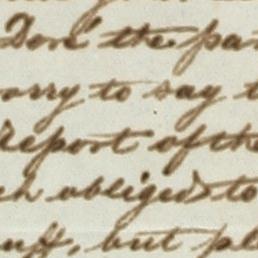 Don' the pa
orry to say t
Report of the
ch obliged to
uff, but pl